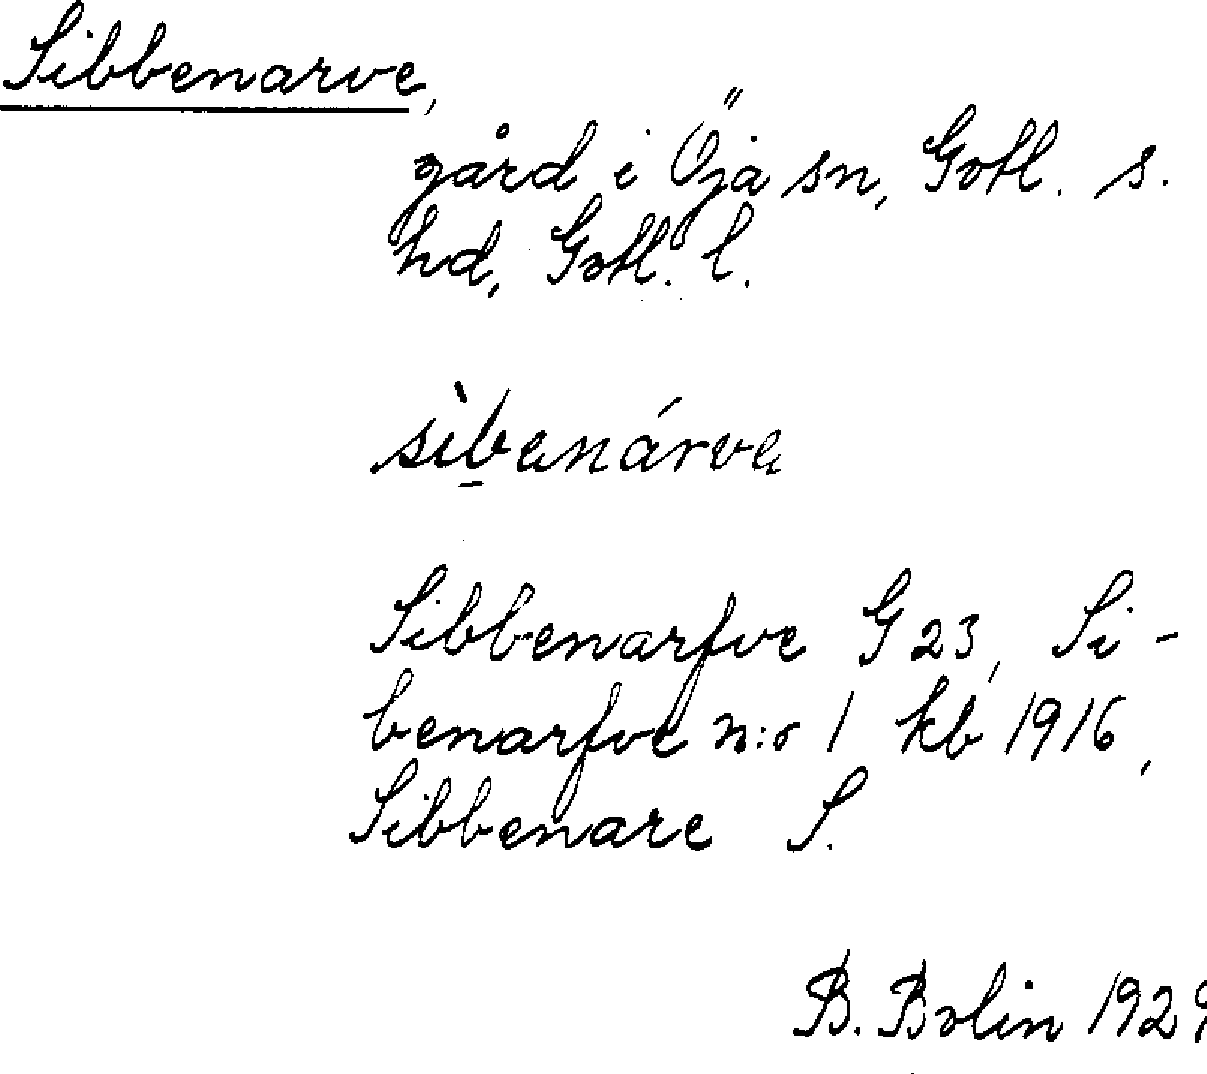 Sibbenarve,
gård i Öja sn, Gotl. s.
hd, Gotl. l.
sìb̲enárve
Sibbenarfve G 23, Si-
benarfve n:o 1 kb 1916,
Sibbenare S.
B. Bolin 1929